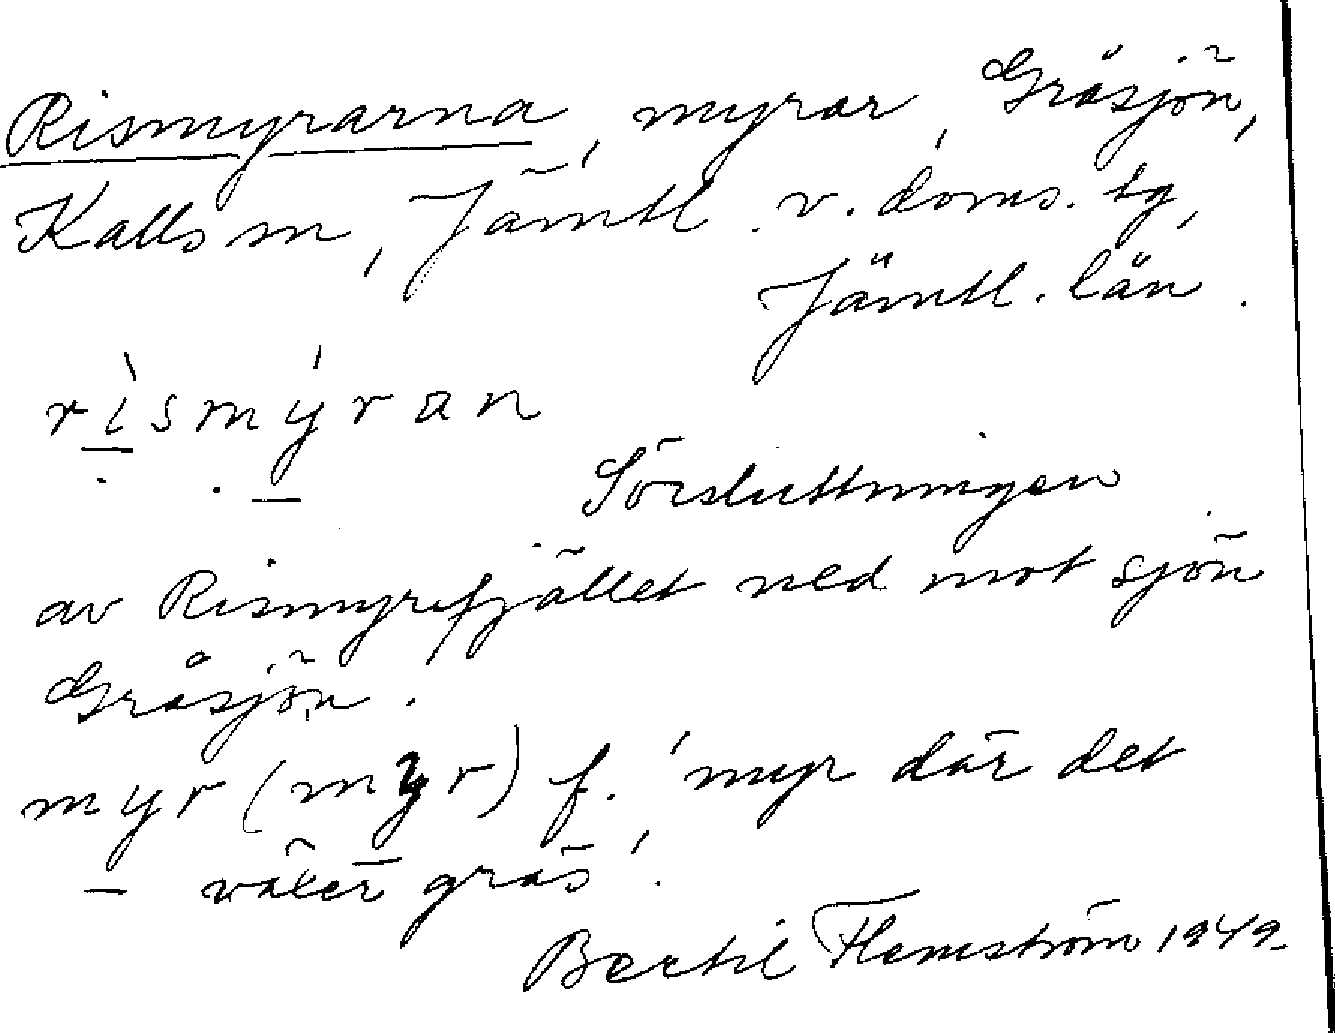 Rismyrarna, myrar, Gråsjön,
Kalls sn, Jämtl. v. doms. tg,
Jämtl. län.
rìsmýran
Sörsluttningen
av Rismyrfjället ned mot sjön
Gråsjön.
myr (myr) f. 'myr där det
växer gräs'.
Bertil Flemström 1949